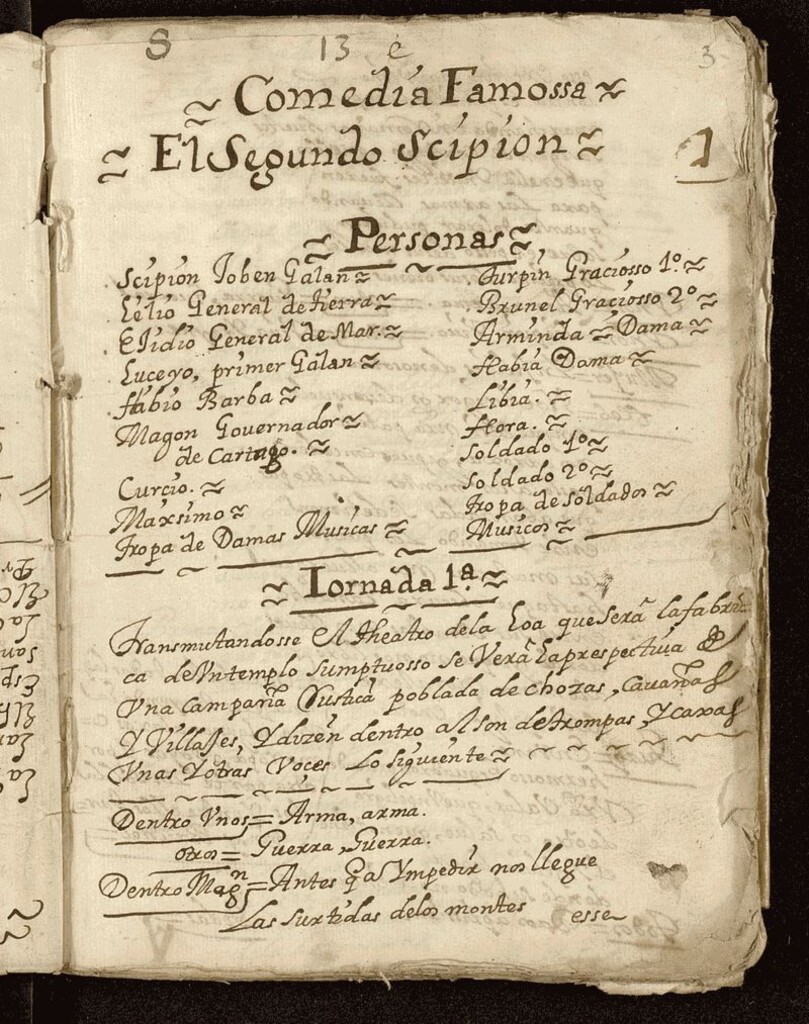 S 13 e 3
~ Comedia Famossa ~
~ El Segundo Scipion ~
1
~ Personas ~
Scipion Joben Galan ~
Lelio General de tierra ~
Egidio General de Mar. ~
Luceyo, primer Galan ~
Fabio Barba ~
Magon Governador ~
de Cartago. ~
Curçio. ~
Maxsimo ~
tropa de Damas Musicas ~
Turpin Graciosso 1º ~
Brunel Graciosso 2º ~
Arminda ~ Dama ~
flabia Dama ~
Libia. ~
flora. ~
Soldado 1º ~
Soldado 2º ~
tropa de Soldados ~
Musicos ~
~ Iornada 1ª ~
Transmutandosse El theatro dela Loa que Serâ la fabri
ca de Vn templo sumptuosso se Verâ La prespectiva de
Vna Campaña Rustica poblada de chozas, Cavañas
Y Villajes, Y dizen dentro al son de trompas, Y caxas
Vnas Y otras Voces Lo siguiente ~
Dentro Vnos = Arma, arma.
otros = Guerra, Guerra.
Dentro Magn = Antes q a Ympedir nos llegue
Las surtidas delos montes
esse